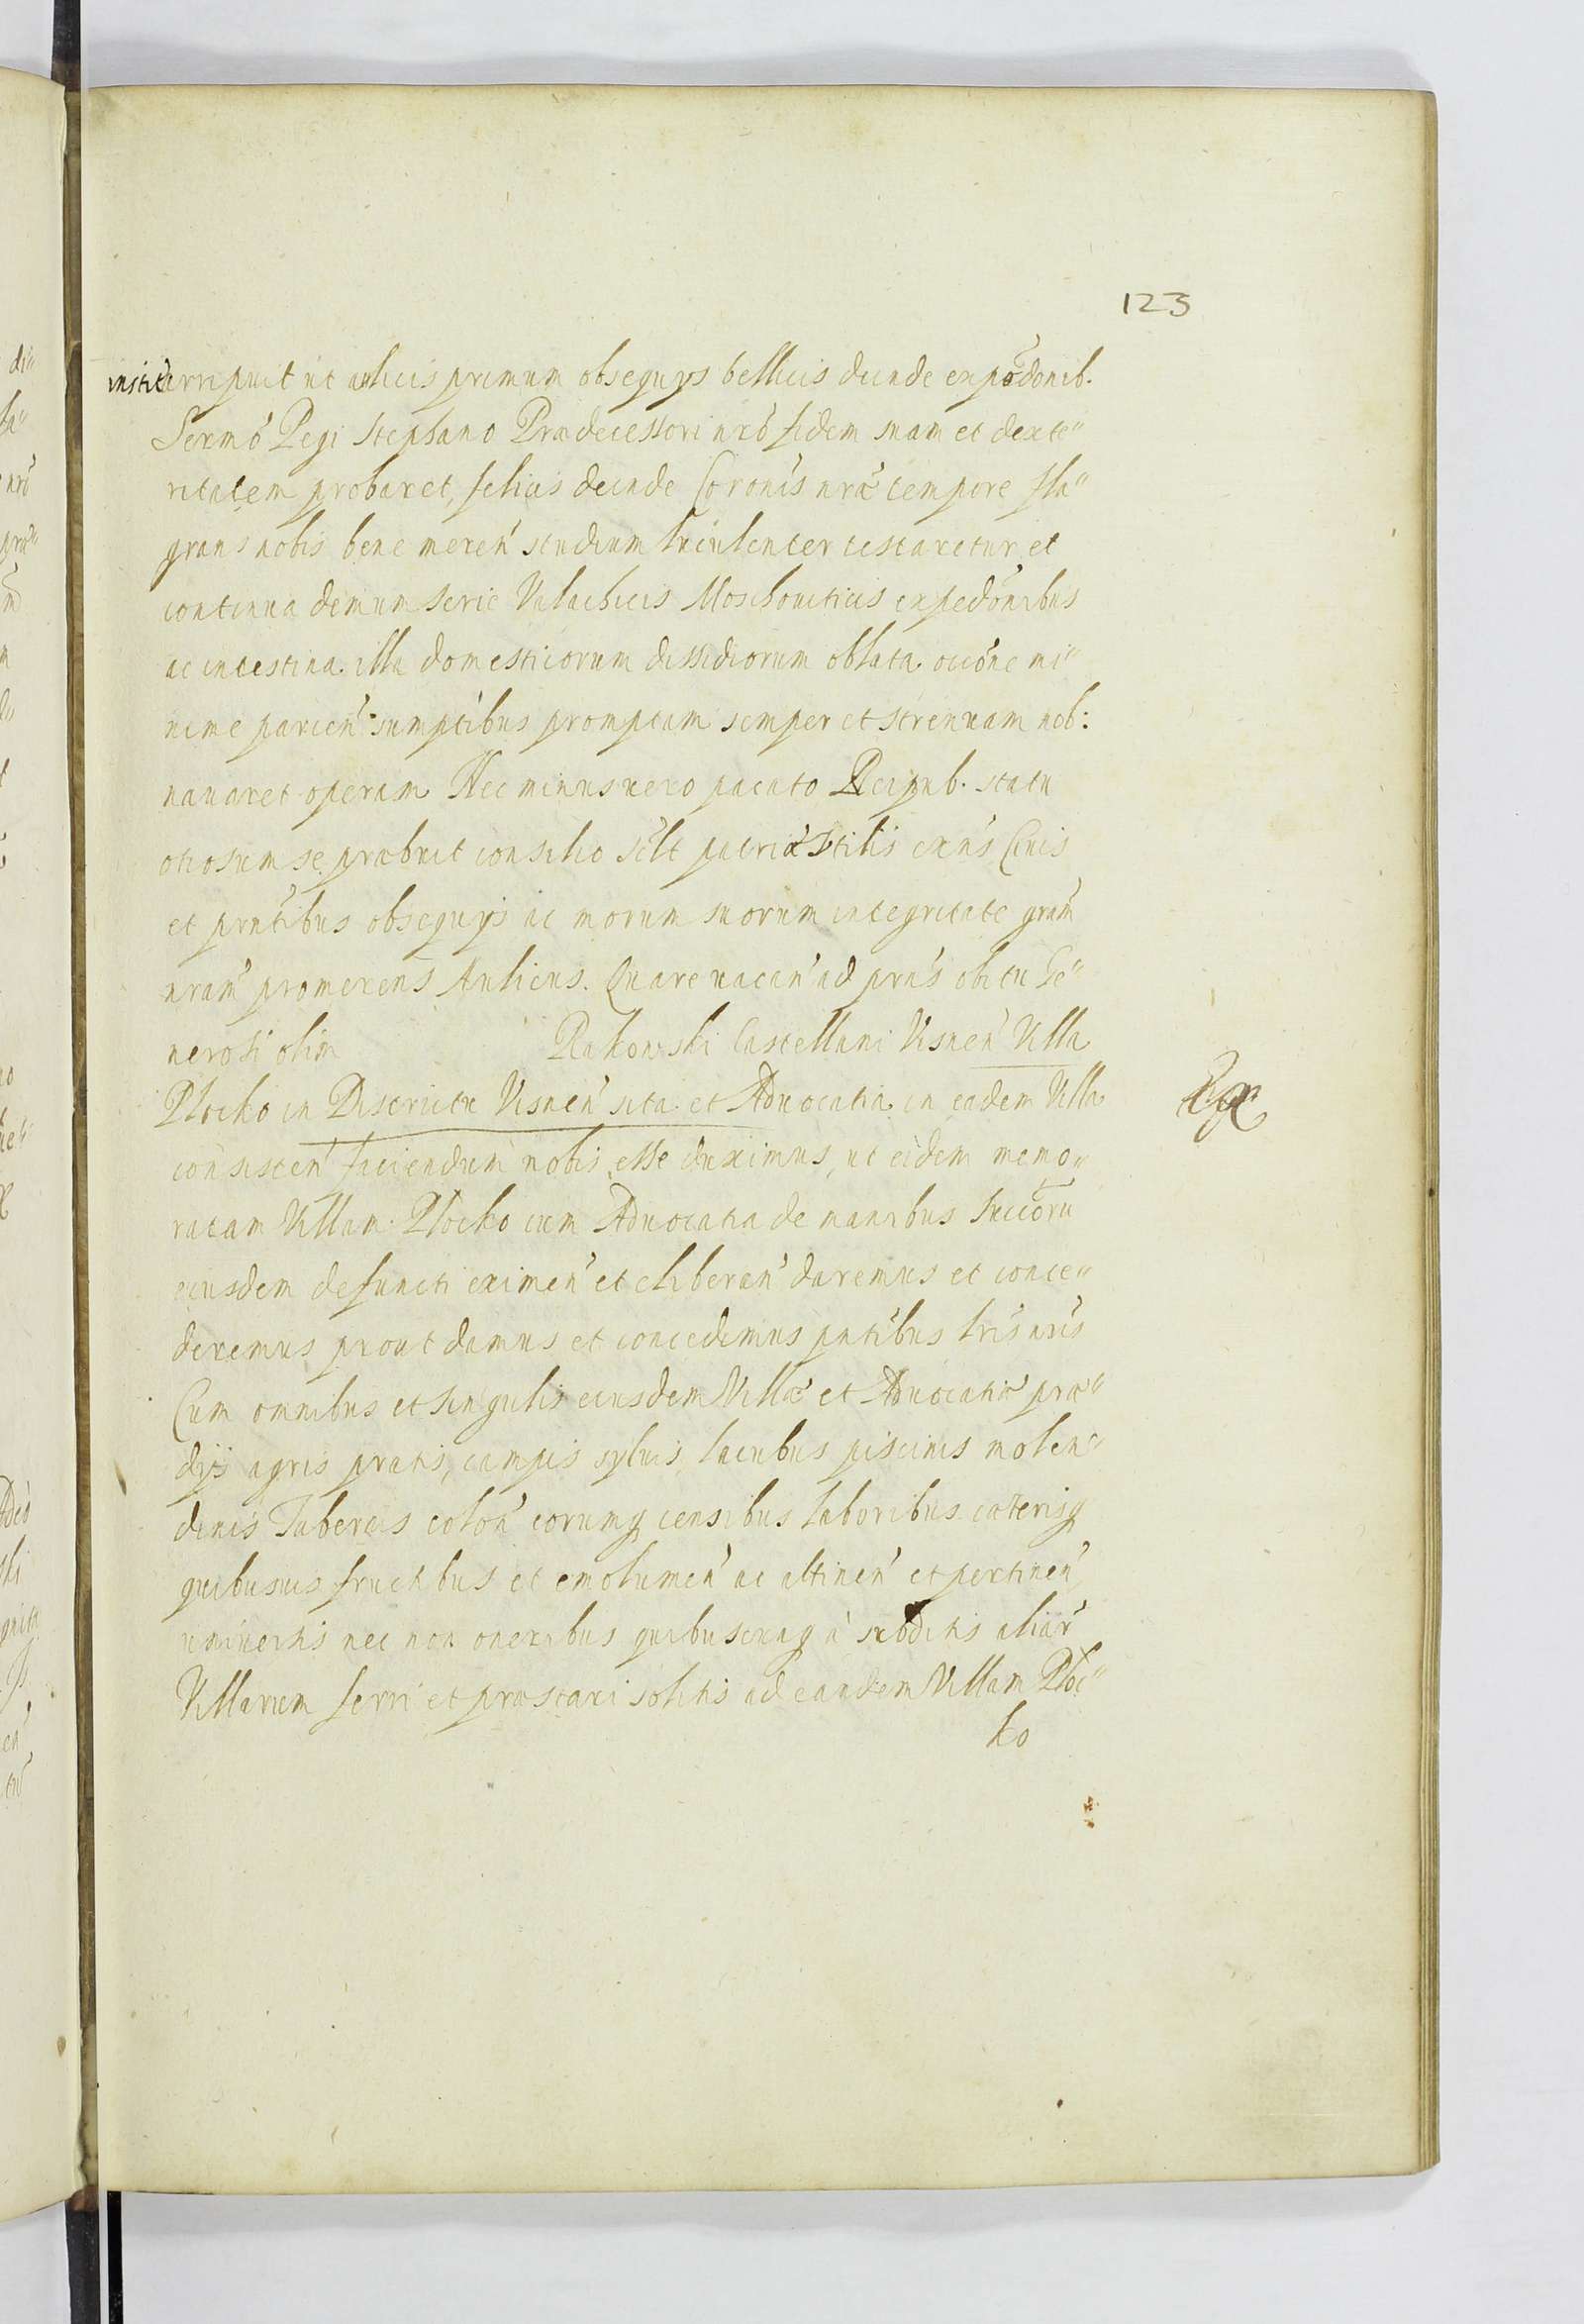 123
arripuit ut aulicis primum obsequys bellicis deinde expedōnib.
Sermō Regi Stephano Prædecessori nrō fidem suam et dexte"
ritatem probaret, felicis deinde Coronīs nræ tempore fla"
grans nobis bene meren' studium luculenter testaretur et
continua demum serie Valachicis Moschouiticis expedōnibus
ac intestina illa domesticorum dissidiorum oblata occōne mi"
nime parcen' sumptibus promptam semper et strenuam nob:
nauaret operam Nec minus uero pacato Reipub. statu
otiosum se præbuit consilio sīlt patriæ Vtilis exns Ciuis
et prntibus obsequys ac morum suorum integritate gram̄
nram̄ promerens Aulicus. Quare uacan' ad prns obitu Ge"
nerosi olim Rakowski Castellani Visnen' Villa
Plocko in Districtu Visnen' sita et Aduocatia in eadem Villa
consisten' faciendum nobis esse duximus, ut eidem memo"
ratam Villam Plocko cum Aduocatia de manibus Succōrū
eiusdem defuncti eximen' et eliberan' daremus et conce"
deremus prout damus et concedimus pntibus lris nris
Cum omnibus et singulis eiusdem Villæ et Aduocatiæ præ"
dijs agris pratis, campis syluis lacubus piscinis molen"
dinis Tabernis colon' eorumq censibus laboribus cæterisq
quibusuis fructibus et emolumen' ac attinen' et pertinen'
uniuersis nec non oneribus quibuscunq à subditis aliar'
Villarum ferri et præstari solitis ad eandem Villam Ploc"
ko